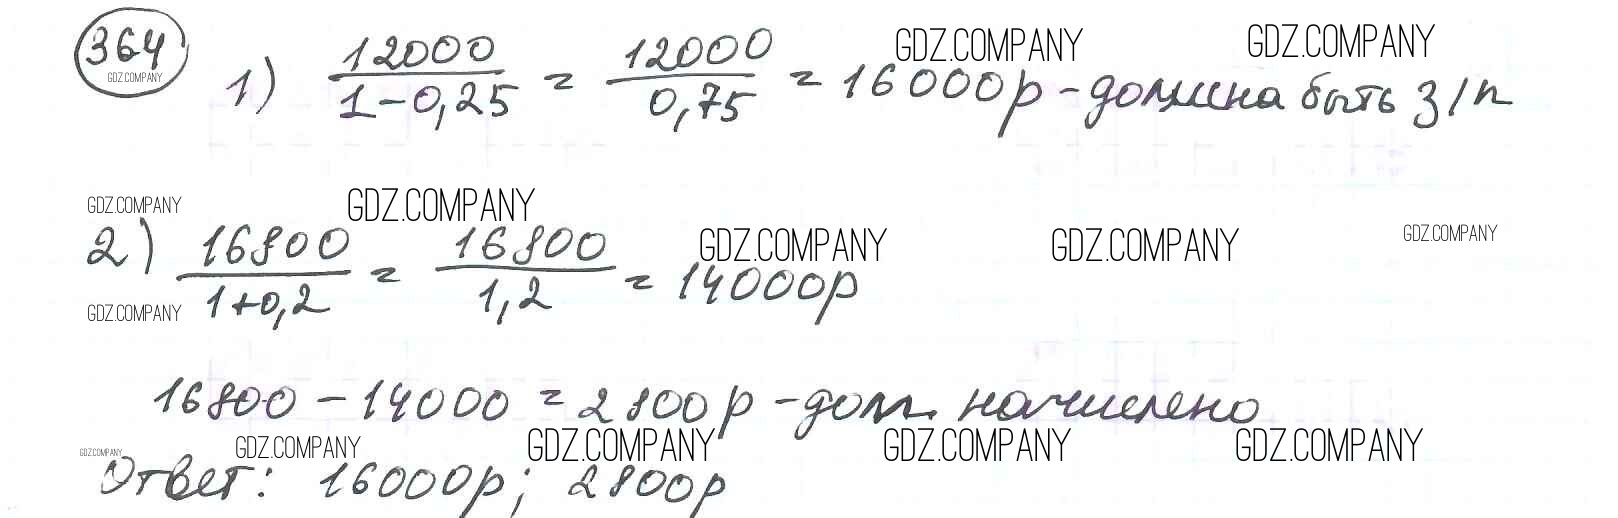 364
1) 12000/(1-0,25) = 12000/0,75 = 16000р - должна быть з/п
2) 16800/(1+0,2) = 16800/1,2 = 14000р
16800 - 14000 = 2800р - долж. начислено
Ответ: 16000р; 2800р
GDZ.COMPANY
GDZ.COMPANY
GDZ.COMPANY
GDZ.COMPANY
GDZ.COMPANY
GDZ.COMPANY
GDZ.COMPANY
GDZ.COMPANY
GDZ.COMPANY
GDZ.COMPANY
GDZ.COMPANY
GDZ.COMPANY
GDZ.COMPANY
GDZ.COMPANY